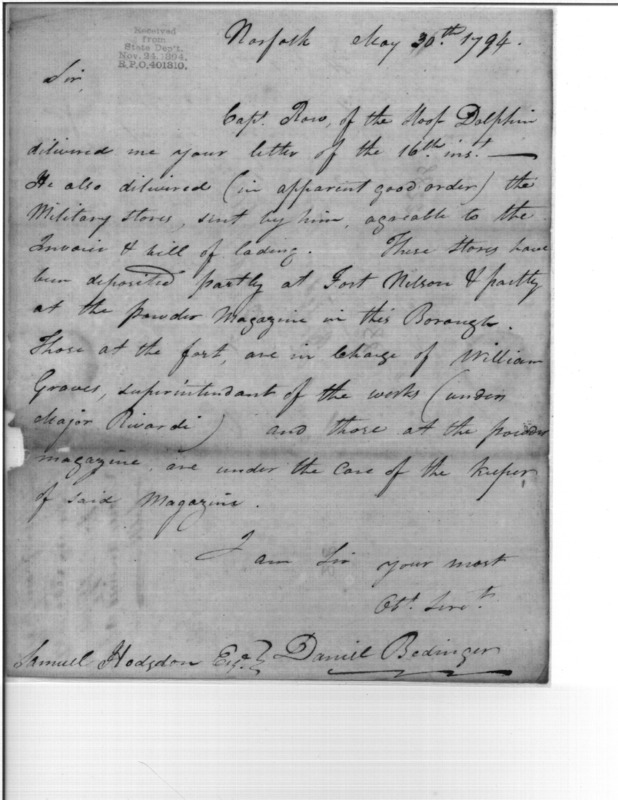 Received
from
State Dep't.
Nov. 24, 1894.
R.P.O, 401310.
Norfolk May 30th. 1794.
Sir,
Capt. Row, of the Sloop Dolphin
delivered me your letter of the 16th. inst. —
He also delivered (in apparent good order) the
Military stores, sent by him, agreable to the
Invoice & bill of lading. These stores have
been deposited partly at Fort Nelson & partly
at the powder Magazine in this Borough.
Those at the fort, are in Charge of William
Graves, superintendant of the works (under
Major Rivardi) and those at the powder
magazine, are under the Care of the keeper
of said Magazine.
I am Sir your most
Obt. Servt.
Samuel Hodgdon Esqr. } Daniel Bedinger